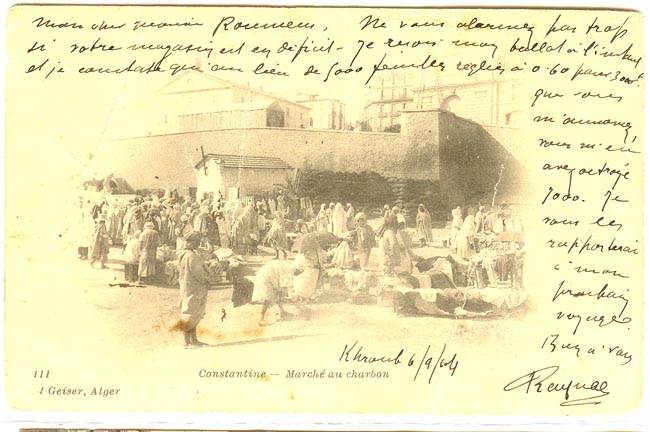 Mon cher cousin Roumieu, Ne vous alarmez pas trop
si votre magasin est en déficit. Je reçois mon ballot à l'instant
et je constate qu'au lieu de 5000 feuilles réglées à 0.60 pour 3000
que vous
m'annoncez,
vous m'en
avez octroyé
7000. Je
vous les
rapporterai
à mon
prochain
voyage.
Bien à vous
Khroub 6/9/04
111 Constantine — Marché au charbon
J Geiser, Alger